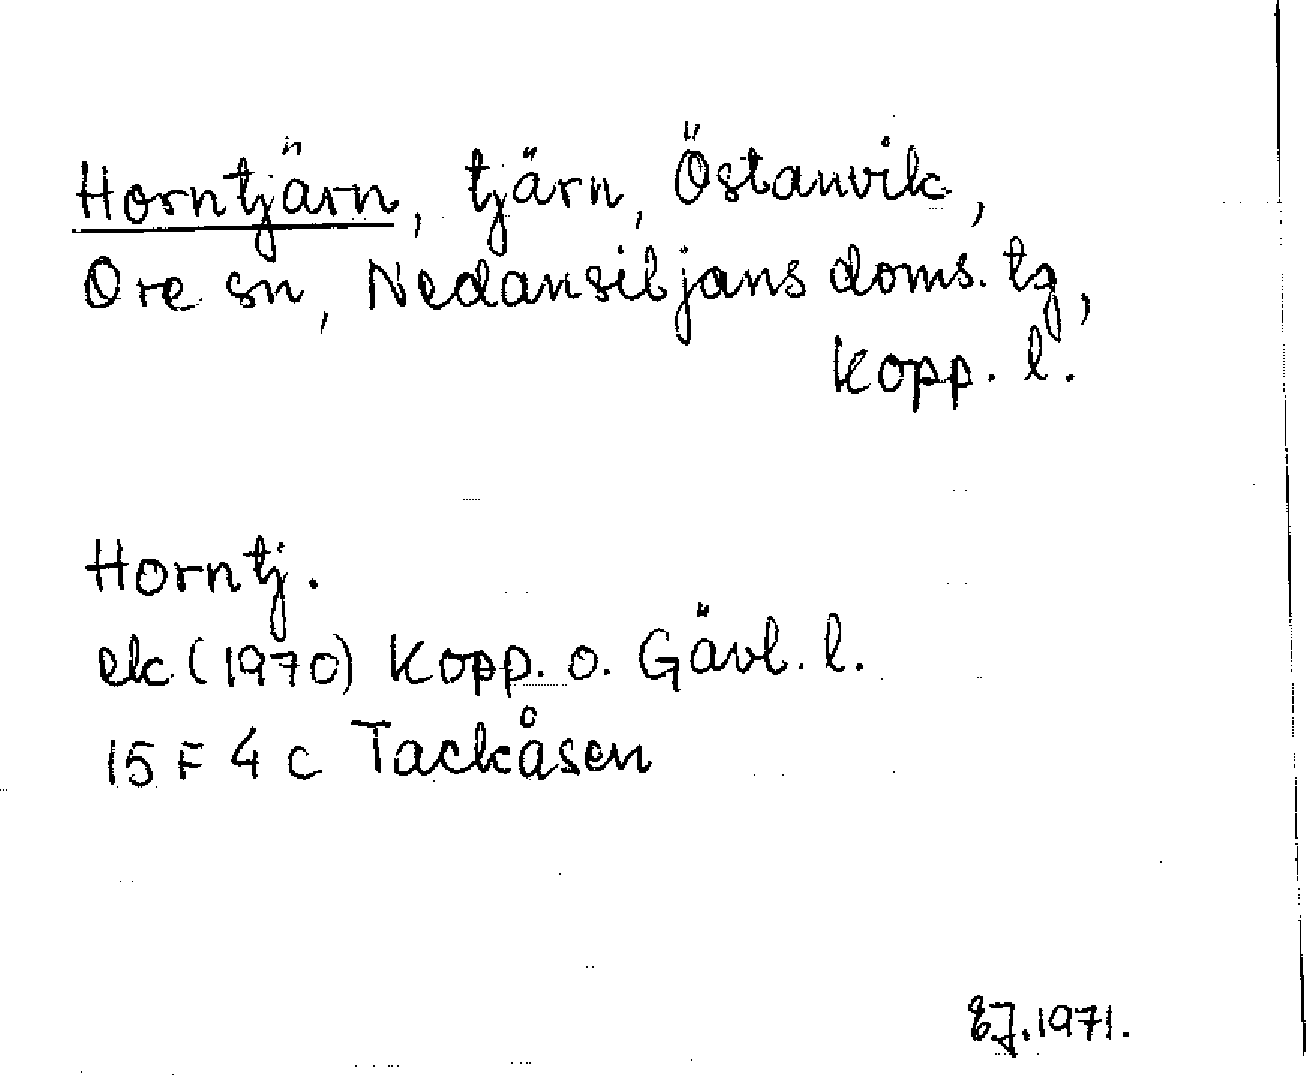 Horntjärn, tjärn, Östanvik,
Ore sn, Nedansiljans doms. tg,
Kopp. l.
Horntj.
ek (1970) Kopp. o. Gävl. l.
15 F 4 c Tackåsen
EJ. 1971.